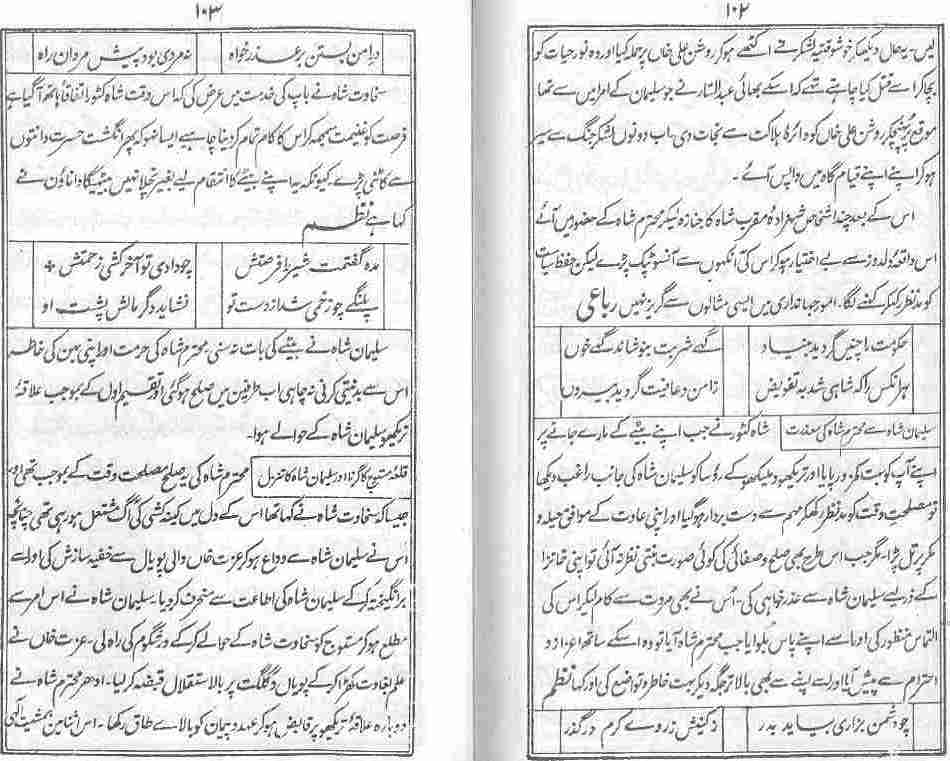 ۱۰۲
لیس۔ یہ حال دیکھکر خوشوقتیہ لشکر نے اکٹھے ہوکر روشن علی خاں پر حملہ کیا اور وہ خود حیات کو
بچا کر اسے قتل کیا چاہتے تھے کہ اسکے بھائی عبدالستار نے جو سلیمان کے امرا میں سے تھا
موقع پر پہنچکر روشن علی خاں کو دائرۂ ہلاکت سے نجات دی۔ اب دونوں لشکر جنگ سے سیر
ہوکر اپنے اپنے قیام گاہ میں واپس آئے۔
اس کے بعد چند اشخاص شہزادہ مقرب شاہ کا جنازہ لیکر محترم شاہ کے حضور میں آئے
اس واقعۂ دلدوز سے بے اختیار ہوکر اس کی آنکھوں سے آنسو ٹپک پڑے لیکن حفظ سیاست
کو مدنظر رکھکر کہنے لگا۔ امور جہانداری میں ایسی مثالوں سے گریز نہیں رباعی
حکومت را چنیں گردید بنیاد گہے شربت بنوشاند گہے خوں
ہر آنکس را کہ شاہی شد بہ تفویض ز امن و عافیت گردید بیروں
سلیمان شاہ سے محترم شاہ کی معذرت شاہ کٹور نے جب اپنے بیٹے کے مارے جانے پر
اپنے آپ کو بہت کمزور پایا اور ترکہو و ملکہو کے رؤسا کو سلیمان شاہ کی جانب راغب دیکھا
تو مصلحت وقت کو مدنظر رکھکر مہم سے دست بردار ہوگیا اور اپنی عادت کے موافق حیلہ و
مکر پر تل پڑا۔ مگر جب اس طرح بھی صلح و صفائی کی کوئی صورت بنتی نظر نہ آئی تو اپنی
کے ذریعے سلیمان شاہ سے عذر خواہی کی۔ اُس نے بھی مروت سے کام لیکر اس کی
التماس منظور کی اور اسے اپنے پاس بلوایا جب محترم شاہ آیا تو وہ اسکے ساتھ اعزاز و
احترام سے پیش آیا اور اسے اپنے سے بھی بالا تر جگہ دیکر بہت خاطر و تواضع کی اور کہا نظم
چو دشمن بزاری بیاید بدر ز کینش ز روے کرم درگذر
۱۰۳
در امن بستن بر عذر خواہ نہ مردی بود پیش مردان راہ
سخاوت شاہ نے باپ کی خدمت میں عرض کی کہ اس وقت شاہ کٹور اتفاقاً ہاتھ آگیا ہے
فرصت کو غنیمت سمجھ کر اس کا کام تمام کر دینا چاہیے ایسا نہو کہ پھر انگشت حسرت دانتوں
سے کاٹنی پڑے۔ کیونکہ یہ اپنے بیٹے کا انتقام لیے بغیر نچلا نہیں بیٹھیگا داناؤں نے
کہا ہے نظم
مدہ گفتمت خیرہ فرصتش چو دادی تو آخر کشی زحمتش
پلنگے چو زخمی شد از دست تو نشاید دگر مالش پشت او
سلیمان شاہ نے بیٹے کی بات نہ سنی محترم شاہ کی حرمت اور اپنی بہن کی خاطر
اس سے بدنیتی کرنی نہ چاہی اب طرفین میں صلح ہوگئی اور تقسیم اول کے بموجب علاقۂ
ترکہو سلیمان شاہ کے حوالے ہوا۔
قلعہ مستوج کا گرنا اور سلیمان شاہ کا تنزل محترم شاہ کی یہ صلح مصلحت وقت کے بموجب تھی اور
جیسا کہ سخاوت شاہ نے کہا تھا اس کے دل میں کینہ کشی کی آگ مشتعل ہو رہی تھی چنانچہ
اُس نے سلیمان شاہ سے وداع ہوکر عزت خاں والی پونیال سے خفیہ سازش کی اور اسے
برانگیختہ کرکے سلیمان شاہ کی اطاعت سے منحرف کردیا۔ سلیمان شاہ نے اس امر سے
مطلع ہوکر مستوج کو سخاوت شاہ کے حوالے کرکے ورشگوم کی راہ لی۔ عزت خاں نے
علم بغاوت کھڑا کرکے پونیال و گلگت پر بالاستقلال قبضہ کرلیا۔ ادھر محترم شاہ نے
دوبارہ علاقۂ ترکہو پر قابض ہوکر عہد و پیمان کو بالائے طاق رکھا۔ اس اثنا میں مشیت الٰہی